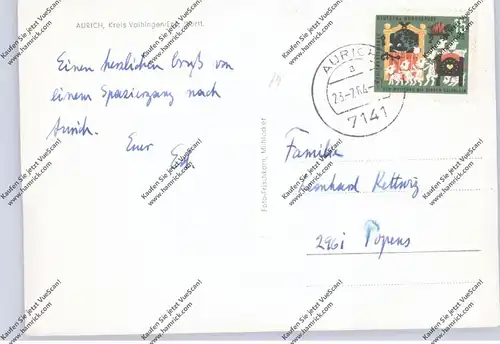 AURICH, Kreis Vaihingen
Einen herzlichen Gruß von
einem Spaziergang nach
Aurich.
Euer
Foto-Frischkorn, Mühlacker
DEUTSCHE BUNDESPOST
AURICH
a
7141
Familie
Leonhard Rettwig
2961 Popens
Kaufen Sie jetzt VueScan!
www.hamrick.com